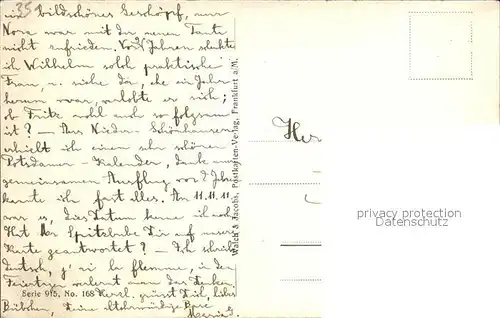 35
ein bildschönes Geschöpf, nur
Nora war mit der neuen Tante
nicht zufrieden. Vor 2 Jahren schickte
ich Wilhelm solch praktische
Frau, u. siehe da, ehe ein Jahr
herum war, verlobte er sich;
ob Fritz wohl auch so folgsam
ist? – Aus Nieder-Schönhausen
erhielt ich einen sehr schönen
Potsdamer-Kalender, dank
gemeinsamen Ausflug vor 2 Jahr.
kannte ich fast alles. Am 11.11.11
war es, dies Datum kenne ich noch
Hat der Spitzbube Dir auf unsere
Karte geantwortet? – Ich schreibe
deutsch, j'ai la flemme, in den
Feiertagen verlernt man das Denken.
Serie 915, No. 168 Herzl. grüsst Dich, liebes
Bübchen, Deine altehrwürdige Base
Maria G.
Walch & Jacobs, Postkarten-Verlag, Frankfurt a/M.
Her
privacy protection
WATERMARK